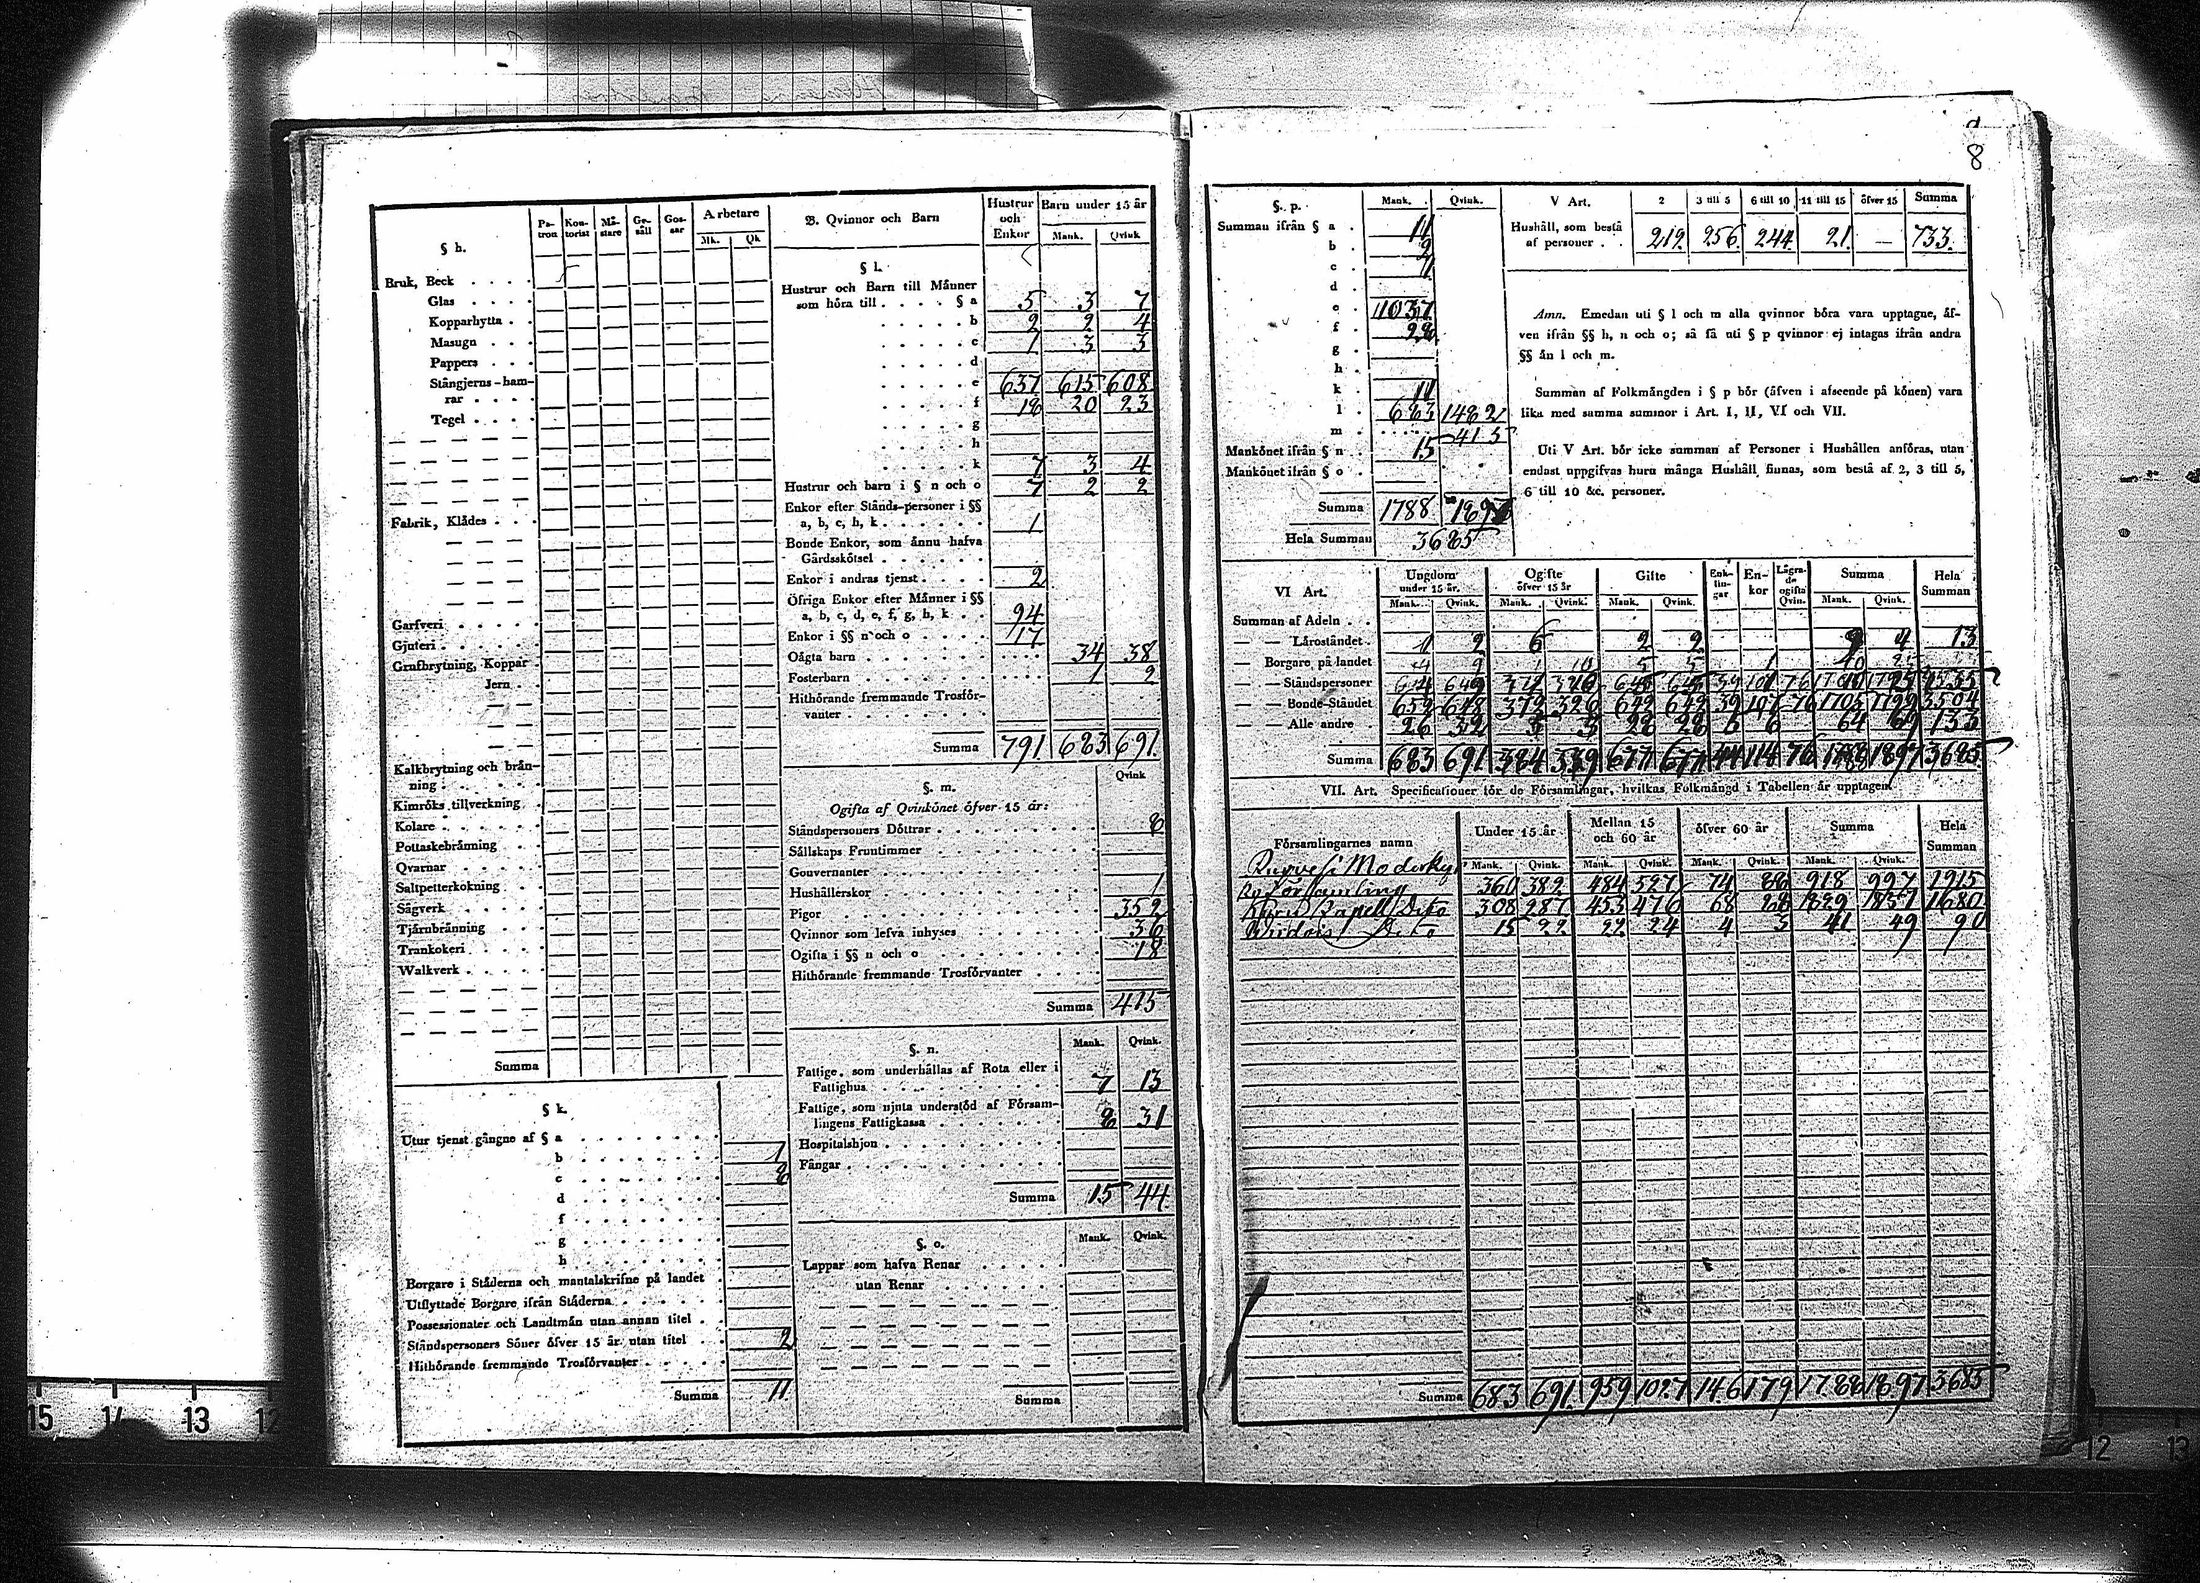 8
§ h.
Pa-tron Kon-torist Må-stare Ge-säll Gos-sar Arbetare
Mk. Qk
Bruk, Beck . . . .
Glas . . . .
Kopparhytta . .
Masugn . . .
Pappers . . .
Stångjerns-ham-
rar . . . .
Tegel . . . .
Fabrik, Klådes . . .
Garfveri . . . . .
Gjuteri . . . . .
Grufbrytning, Koppar
Jern . .
Kalkbrytning och brån-
ning . . . . .
Kimröks tillverkning
Kolare . . . . .
Pottaskebränning . .
Qvarnar . . . .
Saltpetterkokning . .
Sågverk . . . .
Tjårubränning . .
Trankokeri . . . .
Walkverk . . . .
Summa
§ k.
Utur tjenst gångne af § a
b 1
c 8
d
f
g
h
Borgare i Ståderna och mantalskrifne på landet
Utflyttade Borgare ifrån Ståderna
Possessionater och Landtmån utan annan titel
Ståndspersoners Söner öfver 15 år utan titel 2
Hithörande fremmande Trosförvanter
Summa 11
B. Qvinnor och Barn
Hustrur och Enkor Barn under 15 år
Mank. Qvink
§ l.
Hustrur och Barn till Månner
som höra till . . . . § a 5 3 7
b 2 2 4
c 1 3 3
d
e 637 615 608
f 18 20 23
g
h
k 7 3 4
Hustrur och barn i § n och o 7 2 2
Enkor efter Stånds-personer i §§
a, b, c, h, k . . . . . . 1
Bonde Enkor, som ånnu hafva
Gårdsskötsel . . . . . .
Enkor i andras tjenst . . . . 2
Öfriga Enkor efter Månner i §§
a, b, c, d, e, f, g, h, k . . 94
Enkor i §§ n och o . . . . 17
Oågta barn . . . . 34 38
Fosterbarn . . . . 1 2
Hithörande fremmande Trosför-
vanter . . . . . . .
Summa 791 683 691
§. m. Qvink
Ogifta af Qvinkönet öfver 15 år:
Ståndspersoners Döttrar 8
Sållskaps Fruntimmer
Gouvernanter
Hushållerskor 1
Pigor 352
Qvinnor som lefva inhyses 36
Ogifta i §§ n och o 18
Hithörande fremmande Trosförvanter
Summa 415
§. n. Mank. Qvink.
Fattige, som underhållas af Rota eller i
Fattighus 7 13
Fattige, som njuta understöd af Försam-
lingens Fattigkassa 8 31
Hospitalshjon
Fångar
Summa 15 44
§. o. Mank. Qvink.
Lappar som hafva Renar
utan Renar
Summa
§. p. Mank. Qvink.
Summan ifrån § a . 11
b . 2
c .
d .
e . 1037
f . 28
g .
h .
k . 11
l . 683 1482
m . 415
Mankönet ifrån § n . 15
Mankönet ifrån § o .
Summa 1788 1897
Hela Summan 3685
V Art. 2 3 till 5 6 till 10 11 till 15 öfver 15 Summa
Hushåll, som bestå
af personer . . 212 256 244 21 — 733
Anm. Emedan uti § l och m alla qvinnor böra vara upptagne, äf-
ven ifrån §§ h, n och o; så få uti § p qvinnor ej intagas ifrån andra
§§ än l och m.
Summan af Folkmångden i § p bör (äfven i afseende på könen) vara
lika med samma summor i Art. I, II, VI och VII.
Uti V Art. bör icke summan af Personer i Hushållen anföras, utan
endast uppgifvas huru många Hushåll finnas, som bestå af 2, 3 till 5,
6 till 10 &c. personer.
VI Art. Ungdom under 15 år. Ogifte öfver 15 år Gifte Enk-lin-gar En-kor Lågra-de ogifta Qvin. Summa Hela Summan
Mank. Qvink. Mank. Qvink. Mank. Qvink. Mank. Qvink.
Summan af Adeln . .
— — Läroståndet . 1 2 6 2 2 9 4 13
— Borgare på landet
— — Ståndspersoner
— — Bonde-Ståndet 652 648 372 326 642 642 39 107 76 1705 1799 3504
— — Alle andre . 26 32 28 28 64 69 133
Summa 683 691 384 339 677 677 44 114 76 1788 1897 3685
VII. Art. Specificationer för de Församlingar, hvilkas Folkmängd i Tabellen är upptagen.
Församlingarnes namn Under 15 år Mellan 15 och 60 år öfver 60 år Summa Hela Summan
Mank. Qvink. Mank. Qvink. Mank. Qvink. Mank. Qvink.
Ruovesi Moderky
Församling 360 382 484 527 74 88 918 997 1915
Kapell Dito 308 287 453 476 68 88 829 851 1680
Dito 15 22 22 24 4 3 41 49 90
Summa 683 691 959 1027 146 179 1788 1897 3685
15 14 13 12
12 13